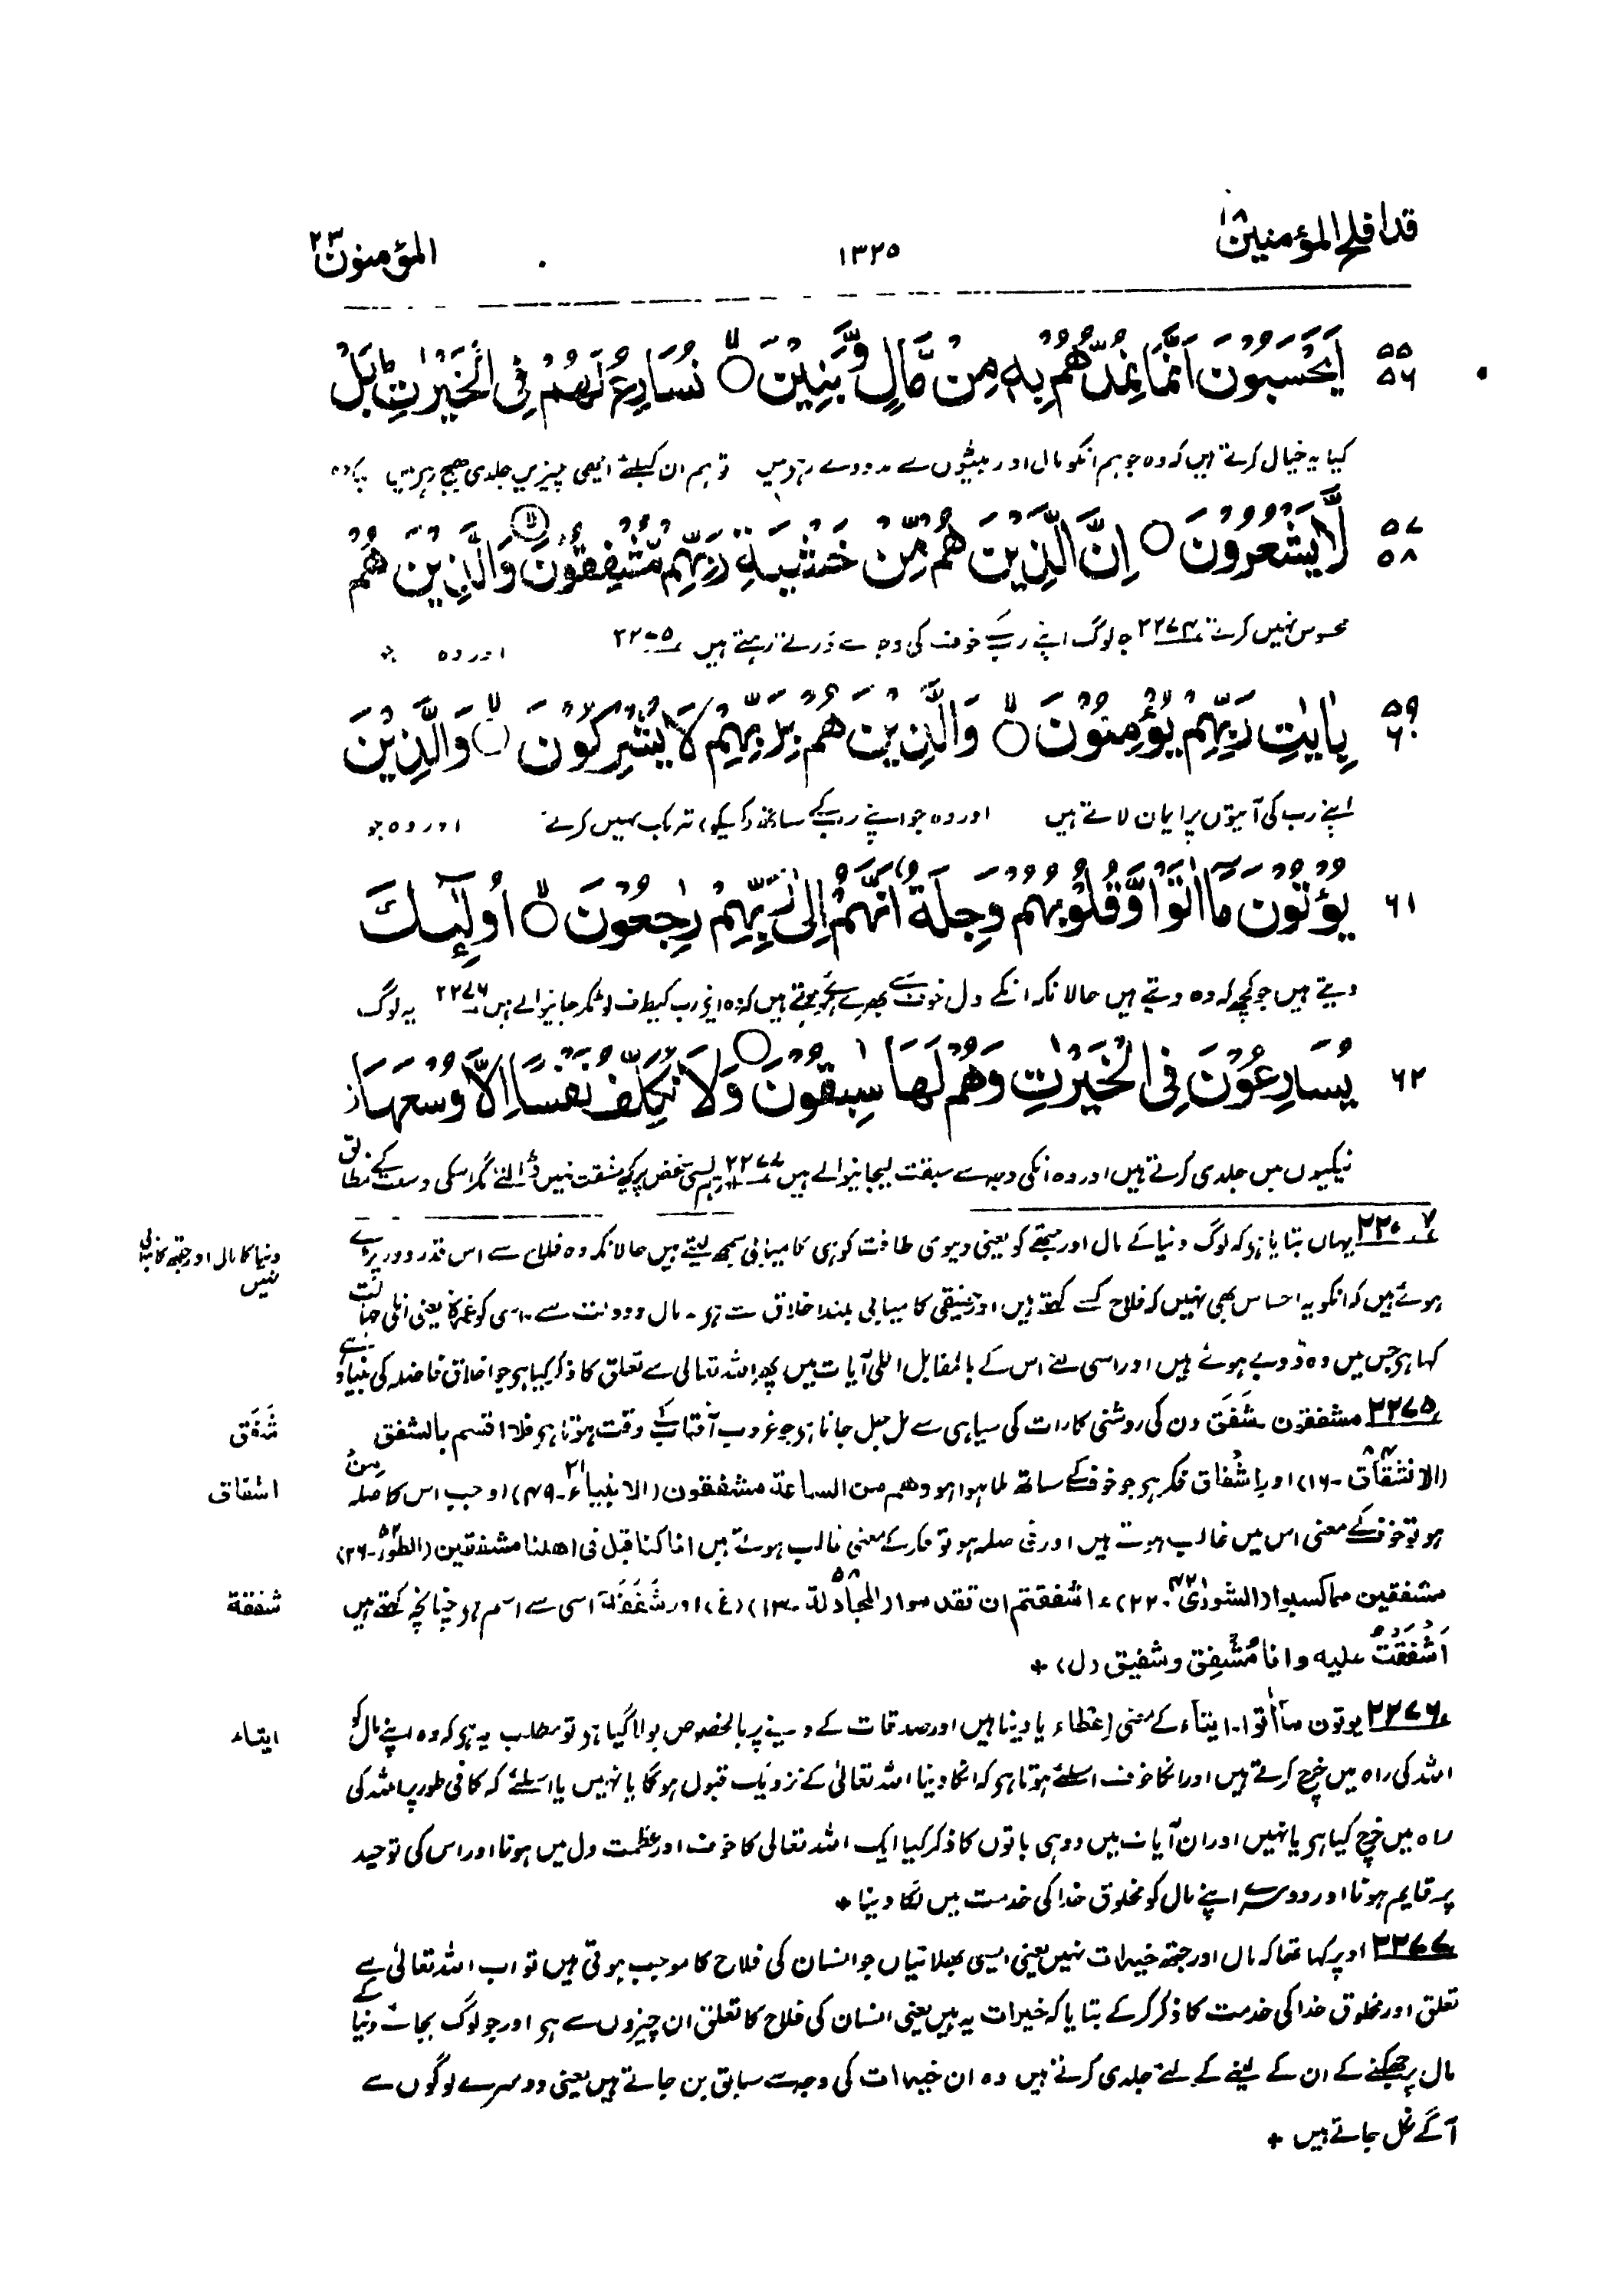 قد افلح المؤمنين ١٨
١٣٢٥
المؤمنون ٢٣
٥٥
٥٦
اَيَحْسَبُوْنَ اَنَّمَا نُمِدُّهُمْ بِهٖ مِنْ مَّالٍ وَّبَنِيْنَ ۙ نُسَارِعُ لَهُمْ فِي الْخَيْرٰتِ ؕ بَلْ
کیا یہ خیال کرتے ہیں کہ وہ جو ہم انکو مال اور بیٹوں سے مدد دے رہے ہیں تو ہم ان کیلئے اچھی چیزیں جلدی بھیج رہے ہیں بلکہ وہ
٥٧
٥٨
لَّا يَشْعُرُوْنَ ○ اِنَّ الَّذِيْنَ هُمْ مِّنْ خَشْيَةِ رَبِّهِمْ مُّشْفِقُوْنَ ۙ وَالَّذِيْنَ هُمْ
محسوس نہیں کرتے ۲۲۷۴ جو لوگ اپنے رب کے خوف کی وجہ سے ڈرتے رہتے ہیں ۲۲۷۵ اور وہ جو
٥٩
٦٠
بِاٰيٰتِ رَبِّهِمْ يُؤْمِنُوْنَ ۙ وَالَّذِيْنَ هُمْ بِرَبِّهِمْ لَا يُشْرِكُوْنَ ۙ وَالَّذِيْنَ
اپنے رب کی آیتوں پر ایمان لاتے ہیں اور وہ جو اپنے رب کے ساتھ (کسیکو) شریک نہیں کرتے اور وہ جو
٦١
يُؤْتُوْنَ مَآ اٰتَوْا وَّقُلُوْبُهُمْ وَجِلَةٌ اَنَّهُمْ اِلٰى رَبِّهِمْ رٰجِعُوْنَ ۙ اُولٰٓئِكَ
دیتے ہیں جو کچھ کہ وہ دیتے ہیں حالانکہ انکے دل خوف سے بھرے ہوئے ہوتے ہیں کہ وہ اپنے رب کیطرف لوٹکر جانیوالے ہیں ۲۲۷۶ یہ لوگ
٦٢
يُسَارِعُوْنَ فِي الْخَيْرٰتِ وَهُمْ لَهَا سٰبِقُوْنَ ○ وَلَا نُكَلِّفُ نَفْسًا اِلَّا وُسْعَهَا
نیکیوں میں جلدی کرتے ہیں اور وہ انکی وجہ سے سبقت لیجانیوالے ہیں ۲۲۷۷ اور ہم کسی شخص پر کچھ مشقت نہیں ڈالتے مگر اسکی وسعت کے مطابق
۲۲۷۴ یہاں بتایا ہے کہ لوگ دنیا کے مال اور جتھے کو یعنی دنیوی طاقت کو ہی کامیابی سمجھ لیتے ہیں حالانکہ وہ فلاح سے اس قدر دور پڑے
دنیا کا مال اور جتھہ کامیابی نہیں
ہوئے ہیں کہ انکو یہ احساس بھی نہیں کہ فلاح کسے کہتے ہیں اور حقیقی کامیابی بلند اخلاق سے ہے۔ مال و دولت سے۔ اسی کو غمرۃ یعنی انکی جہالت
کہا ہے جس میں وہ ڈوبے ہوئے ہیں اور اسی لئے اس کے بالمقابل اگلی آیات میں پھر اللہ تعالی سے تعلق کا ذکر کیا ہے جو اخلاق فاضلہ کی بنیاد ہے
۲۲۷۵ مشفقون شَفَق دن کی روشنی کا رات کی سیاہی سے مل جل جانا ہے جو غروب آفتاب کے وقت ہوتا ہے فلا اقسم بالشفق
شَفَق
(الانشقاق ۸۴۔۱۶) اور اِشْفاق فکر ہے جو خوف کے ساتھ ملا ہوا ہو وهم من الساعة مشفقون (الانبیاء ۲۱۔۴۹) اور جب اس کا صلہ من
اشفاق
ہو تو خوف کے معنی اس میں غالب ہوتے ہیں اور فی صلہ ہو تو فکر کے معنی غالب ہوتے ہیں انا کنا قبل فی اهلنا مشفقین (الطور ۵۲۔۲۶)
مشفقین مما کسبوا (الشوریٰ ۴۲۔۲۲) ء اشفقتم ان تقدموا (المجادلة ۵۸۔۱۳) (غ) اور شَفَقَة اسی سے اسم ہے چنانچہ کہتے ہیں
شفقة
اَشْفَقْتُ علیه وانا مُشْفِق وشفیق (ل) +
۲۲۷۶ یوتون ما اٰتوا۔ ایتاء کے معنی اِعْطاء یا دینا ہیں اور صدقات کے دینے پر بالخصوص بولا گیا ہے تو مطلب یہ ہے کہ وہ اپنے مال کو
ایتاء
اللہ کی راہ میں خرچ کرتے ہیں اور انکا خوف اسلئے ہوتا ہے کہ انکا دینا اللہ تعالیٰ کے نزدیک قبول ہوگا یا نہیں یا اسلئے کہ کافی طور پر اللہ کی
راہ میں خرچ کیا ہے یا نہیں اور ان آیات میں دو ہی باتوں کا ذکر کیا ایک اللہ تعالی کا خوف اور عظمت دل میں ہونا اور اس کی توحید
پر قایم ہونا اور دوسرے اپنے مال کو مخلوق خدا کی خدمت میں لگا دینا +
۲۲۷۷ اوپر کہا تھا کہ مال اور جتھہ خیرات نہیں یعنی ایسی بھلائیاں جو انسان کی فلاح کا موجب ہوتی ہیں تو اب اللہ تعالیٰ سے
تعلق اور مخلوق خدا کی خدمت کا ذکر کرکے بتایا کہ خیرات یہ ہیں یعنی انسان کی فلاح کا تعلق ان چیزوں سے ہے اور جو لوگ بجائے دنیا کے
مال پر جھکنے کے ان کے لینے کے لئے جلدی کرتے ہیں وہ ان خیرات کی وجہ سے سابق بن جاتے ہیں یعنی دوسرے لوگوں سے
آگے نکل جاتے ہیں +